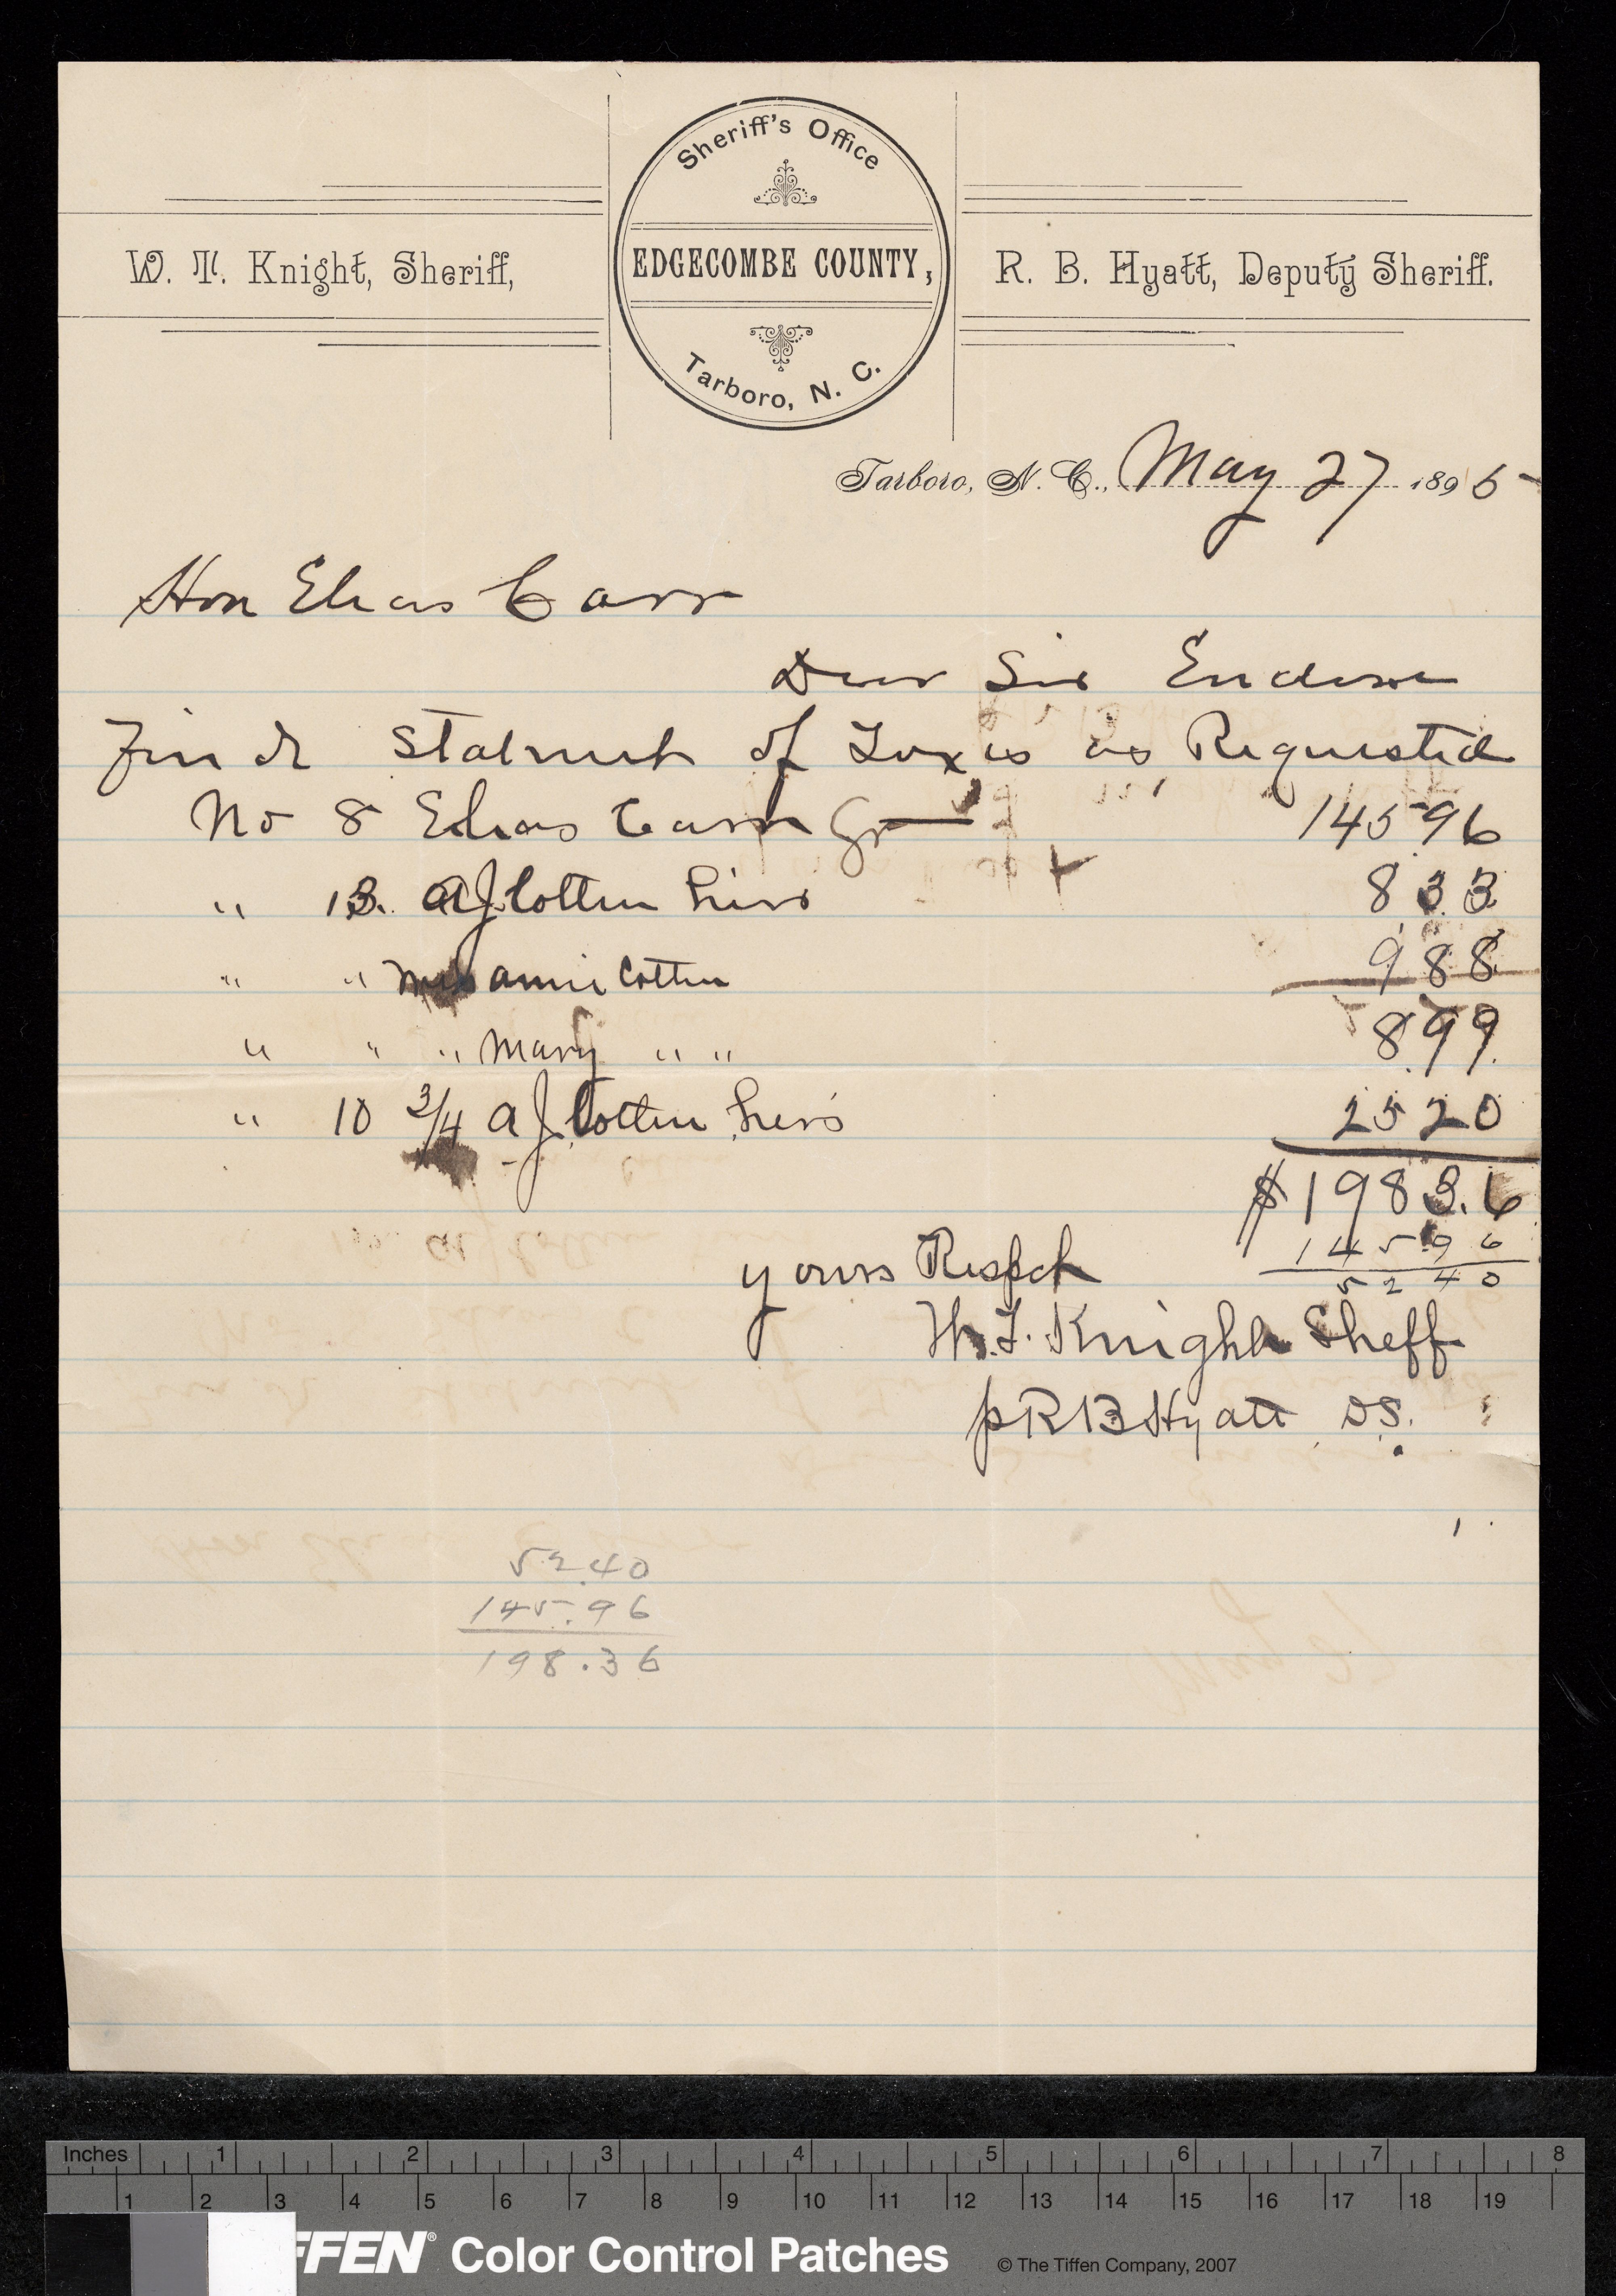 Sheriff's Office
W. T. Knight, Sheriff, EDGECOMBE COUNTY, R. B. Hyatt, Deputy Sheriff.
Tarboro, N. C.
Tarboro, N. C., May 27 1895
Hon Elias Carr
Dear Sir Enclose
find Statment of Taxes as Requested
No 8 Elias Carr 14596
" 13. A J Cotten heirs 833
" " Miss Annie Cotten 988
" " " Mary " " 899
" 10 3/4 A J Cotten heirs 2520
$1983.6
14596
5240
yours Respect
W. T. Knight Sheff
p R B Hyatt DS.
52.40
145.96
198.36
Inches 1 2 3 4 5 6 7 8
1 2 3 4 5 6 7 8 9 10 11 12 13 14 15 16 17 18 19
FFEN® Color Control Patches © The Tiffen Company, 2007